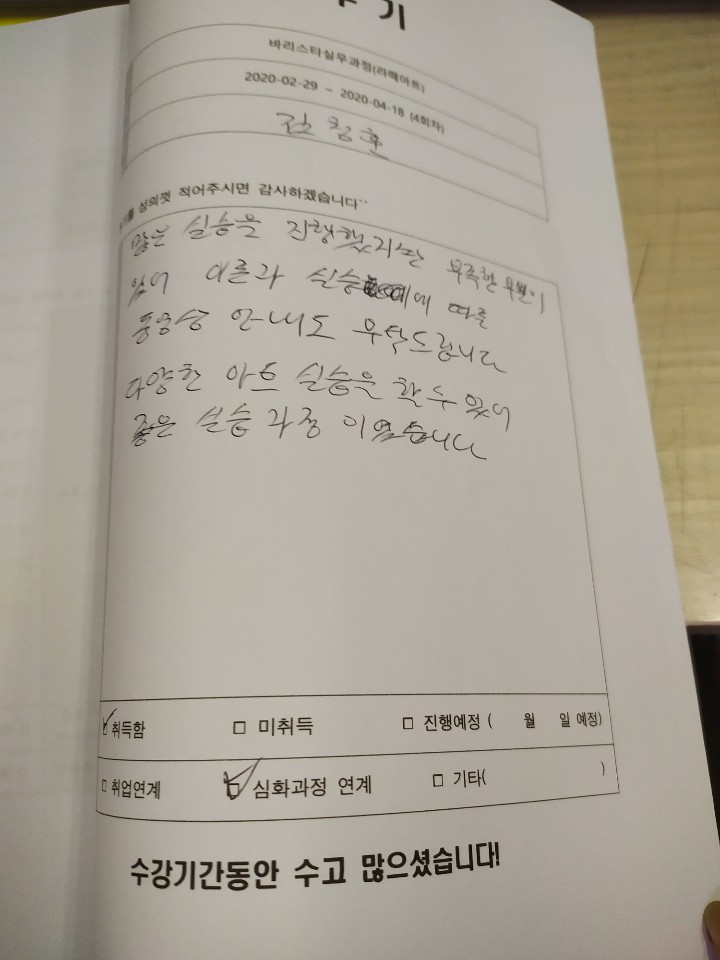 기
바리스타실무과정(라떼아트)
2020-02-29 ~ 2020-04-18 (4회차)
김창훈
를 성의껏 적어주시면 감사하겠습니다^^
많은 실습을 진행했지만 부족한 부분이
있어 이론과 실습에 따른
동영상 안내도 부탁드립니다
다양한 아트 실습을 할 수 있어
좋은 실습 과정 이었습니다
취득함 □ 미취득 □ 진행예정 ( 월 일 예정)
□ 취업연계 □ 심화과정 연계 □ 기타( )
수강기간동안 수고 많으셨습니다!